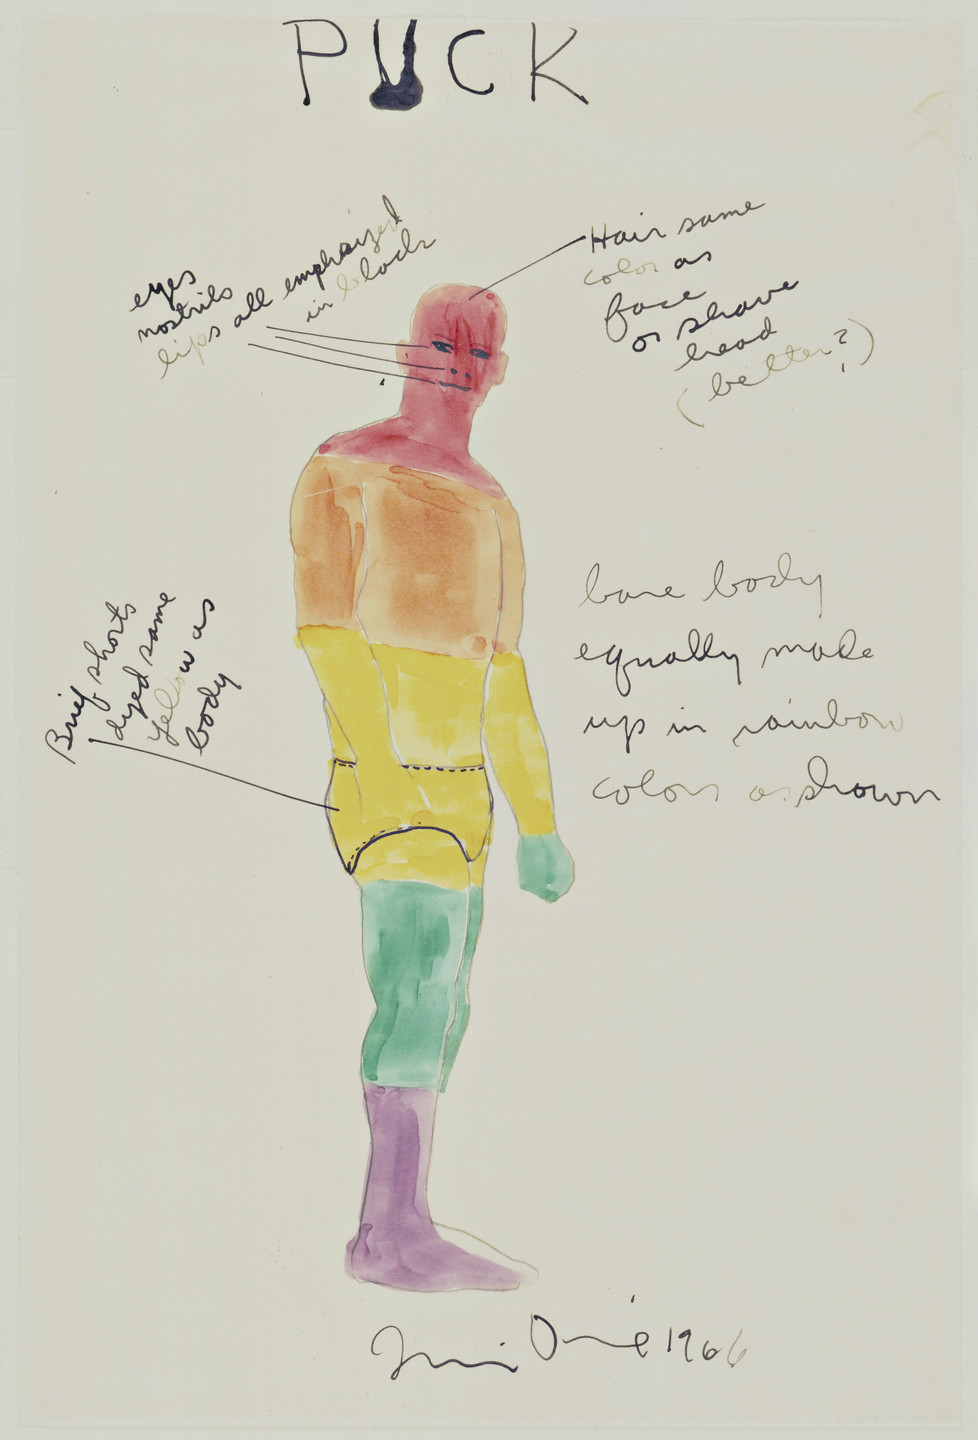 PUCK
eyes
nostrils
lips all emphasized
in black
Hair same
color as
face
or shave
head
(better?)
Brief shorts
dyed same
yellow as
body
bare body
equally made
up in rainbow
colors as shown
Jim Dine 1966